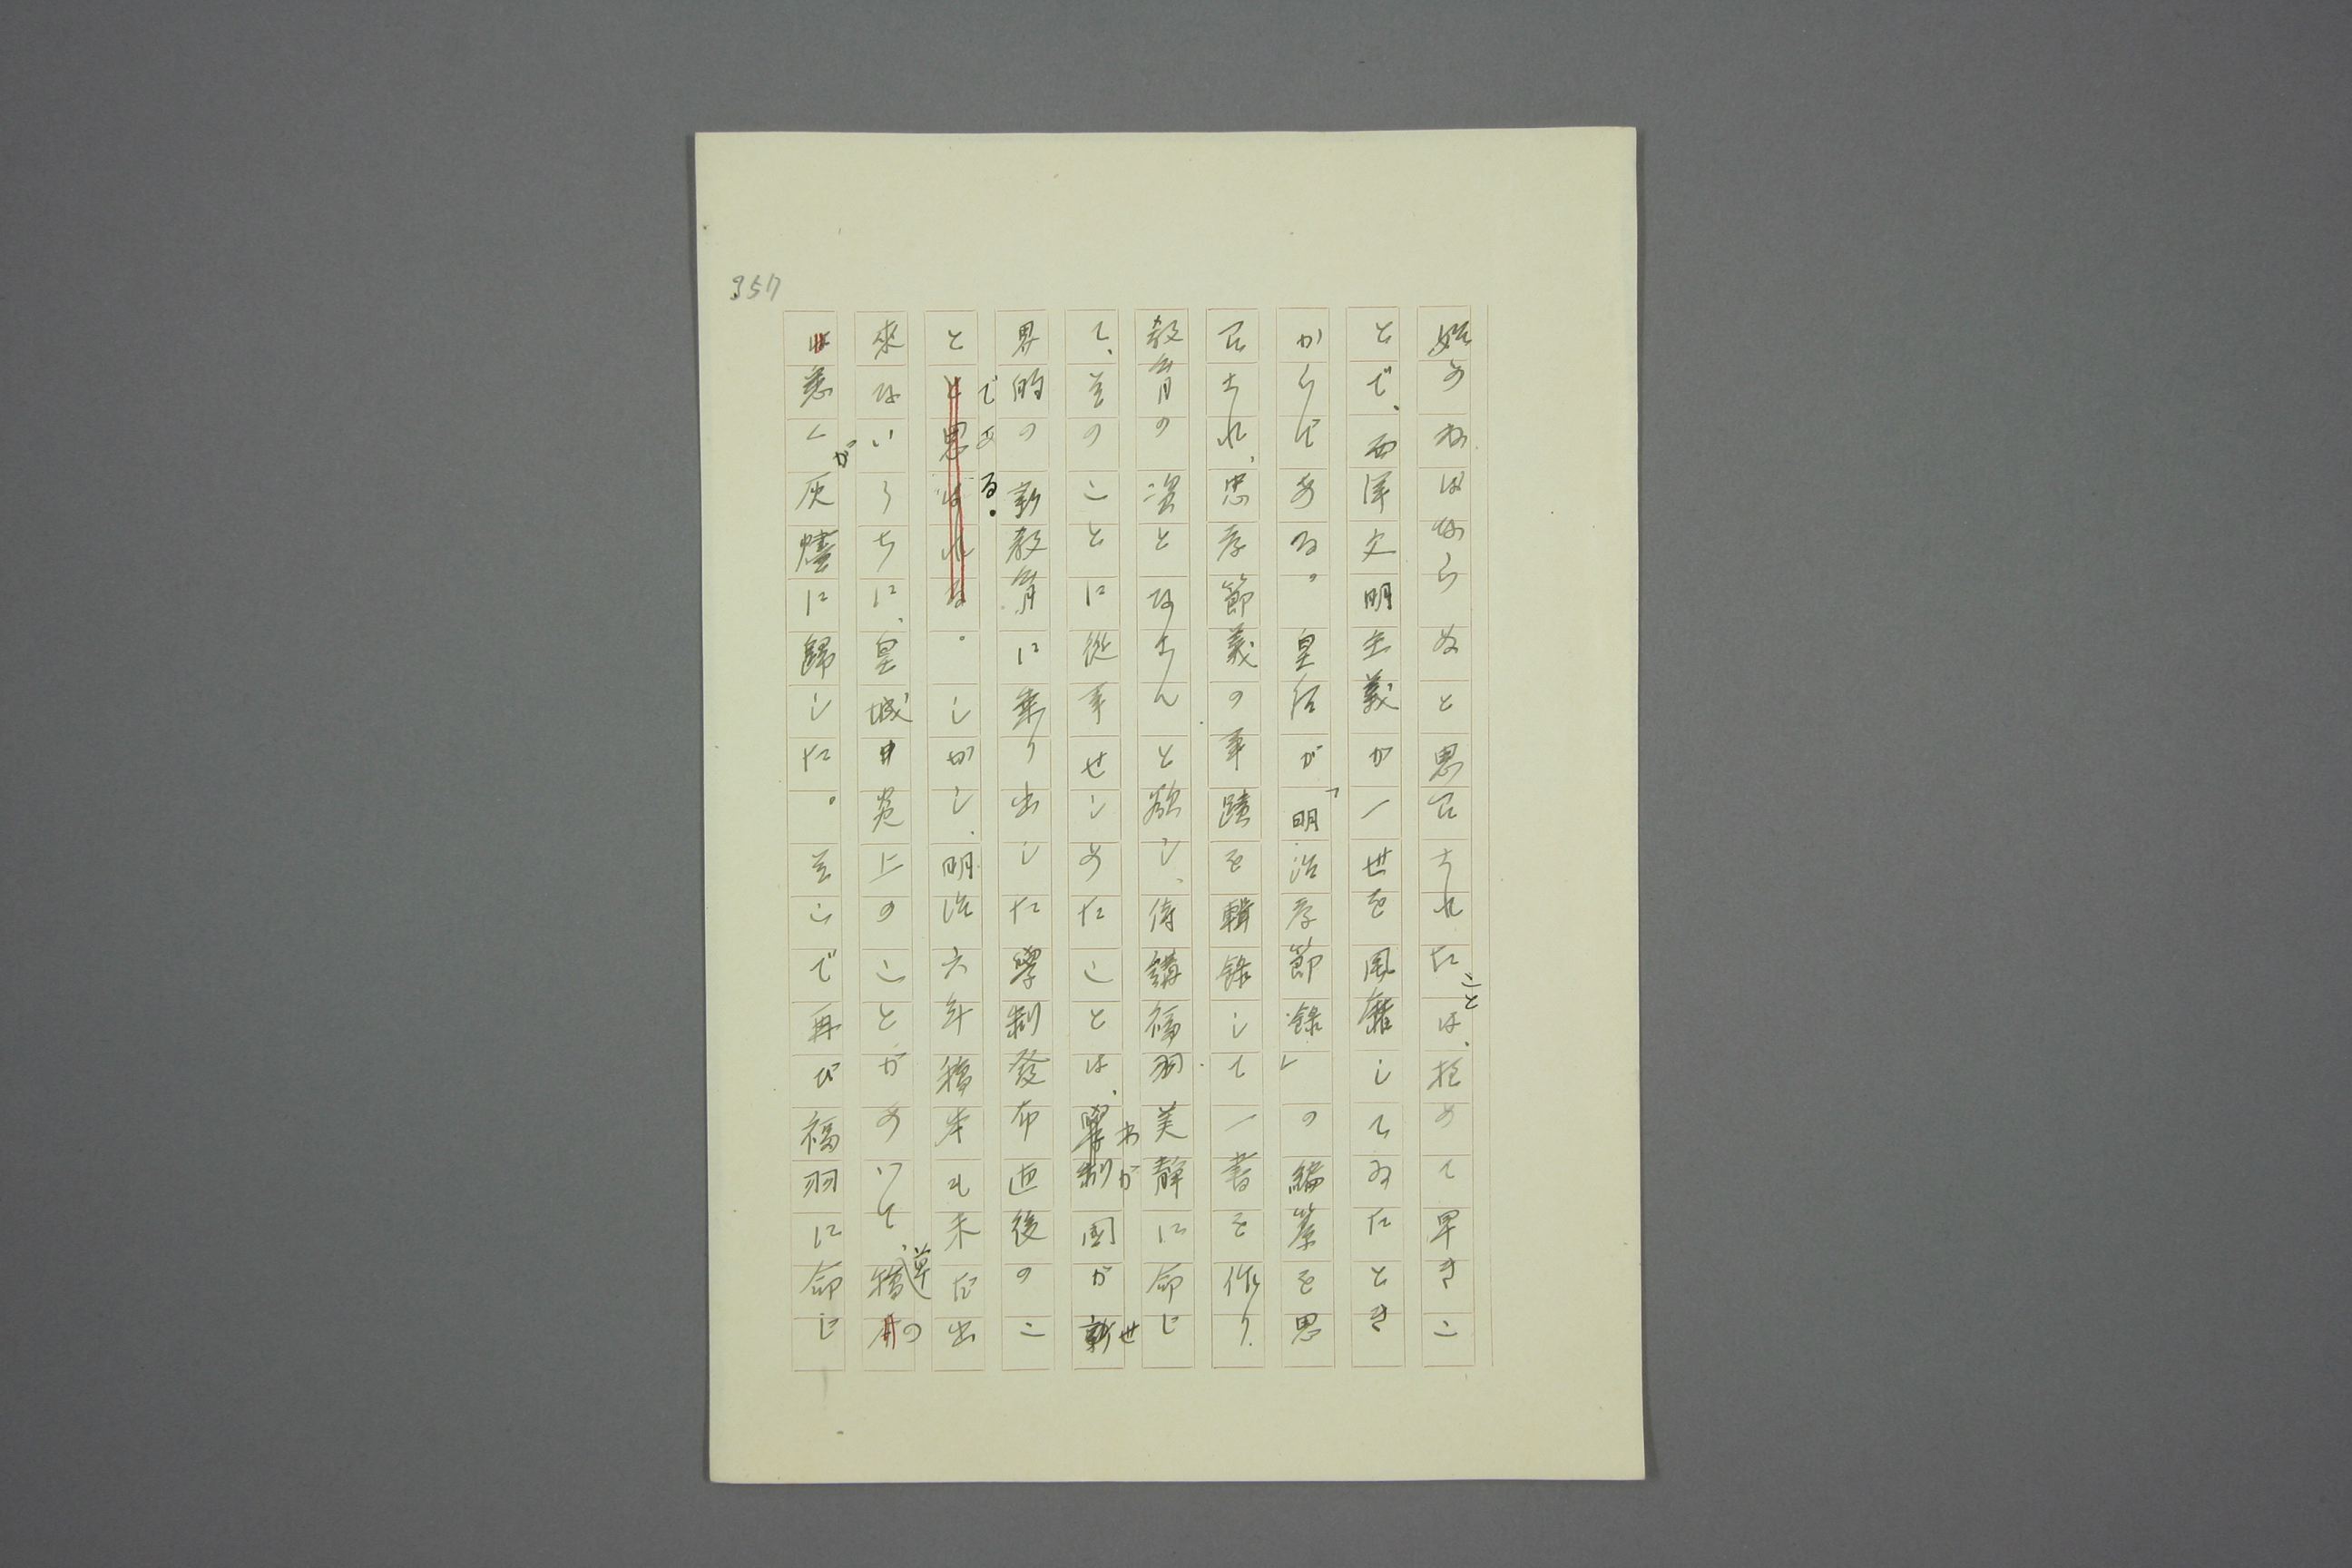 357
始めねばならぬと思召されたことは、極めて早きこ
とで、西洋文明主義が一世を風靡してゐたとき
からである。皇后が「明治孝節録」の編纂を思
召され、忠孝節義の事蹟を輯録して一書を作り、
教育の資となさんと欲し、侍講福羽美静に命じ
て、そのことに從事せしめたことは、わが國が世
界的の新教育に乘り出した學制發布直後のこ
とである。しかし、明治六年稿本も未だ出
來ないうちに、皇城炎上のことがあつて、草稿の
悉くが灰燼に歸した。そこで再び福羽に命じ